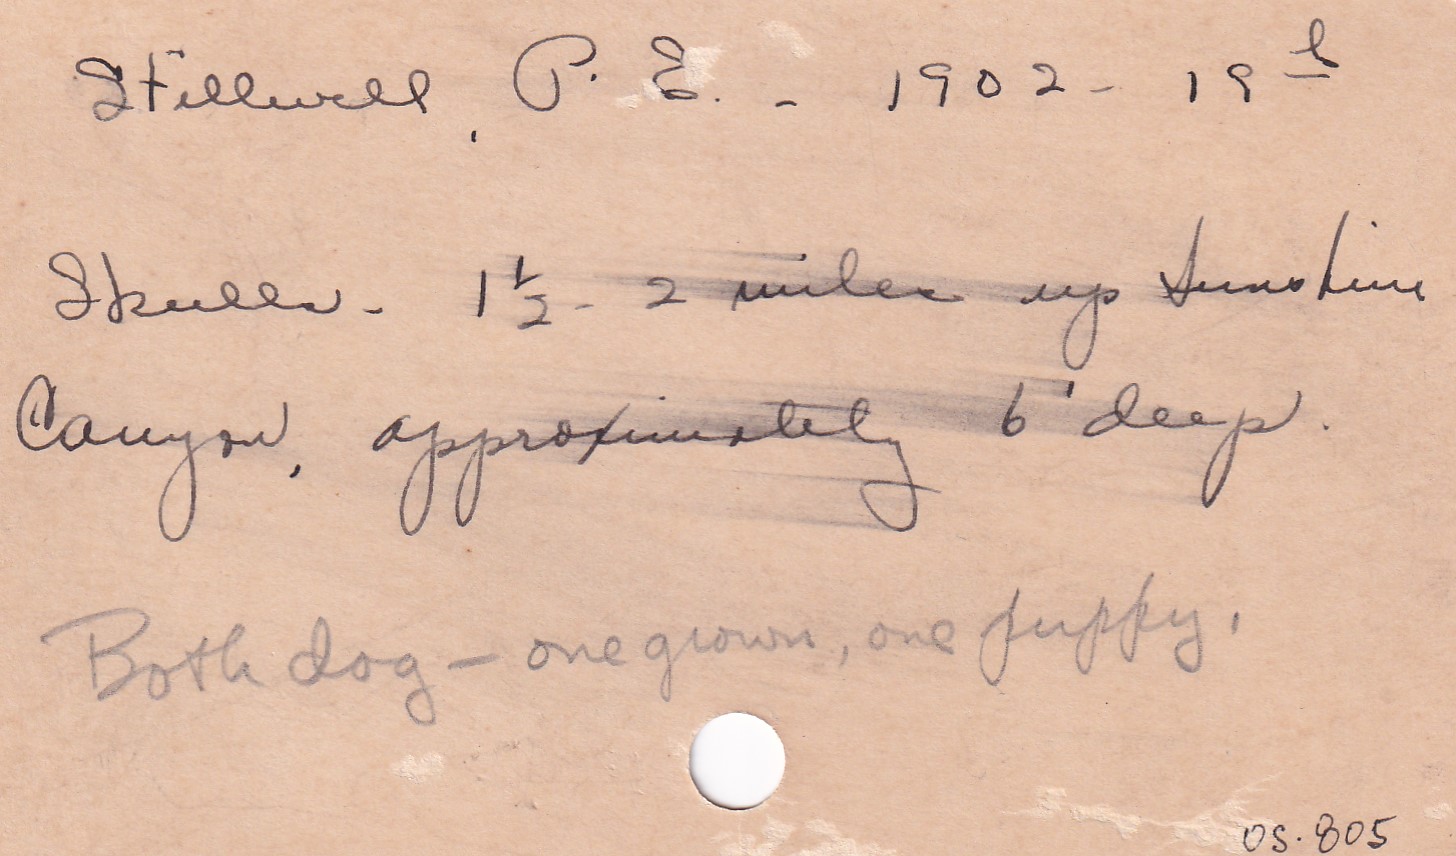 Stillwell, P. E. - 1902 - 19th
Skulls - 1 1/2 - 2 miles up Sunshine
Canyon, approximately 6' deep.
Both dog — one grown, one puppy.
OS.805